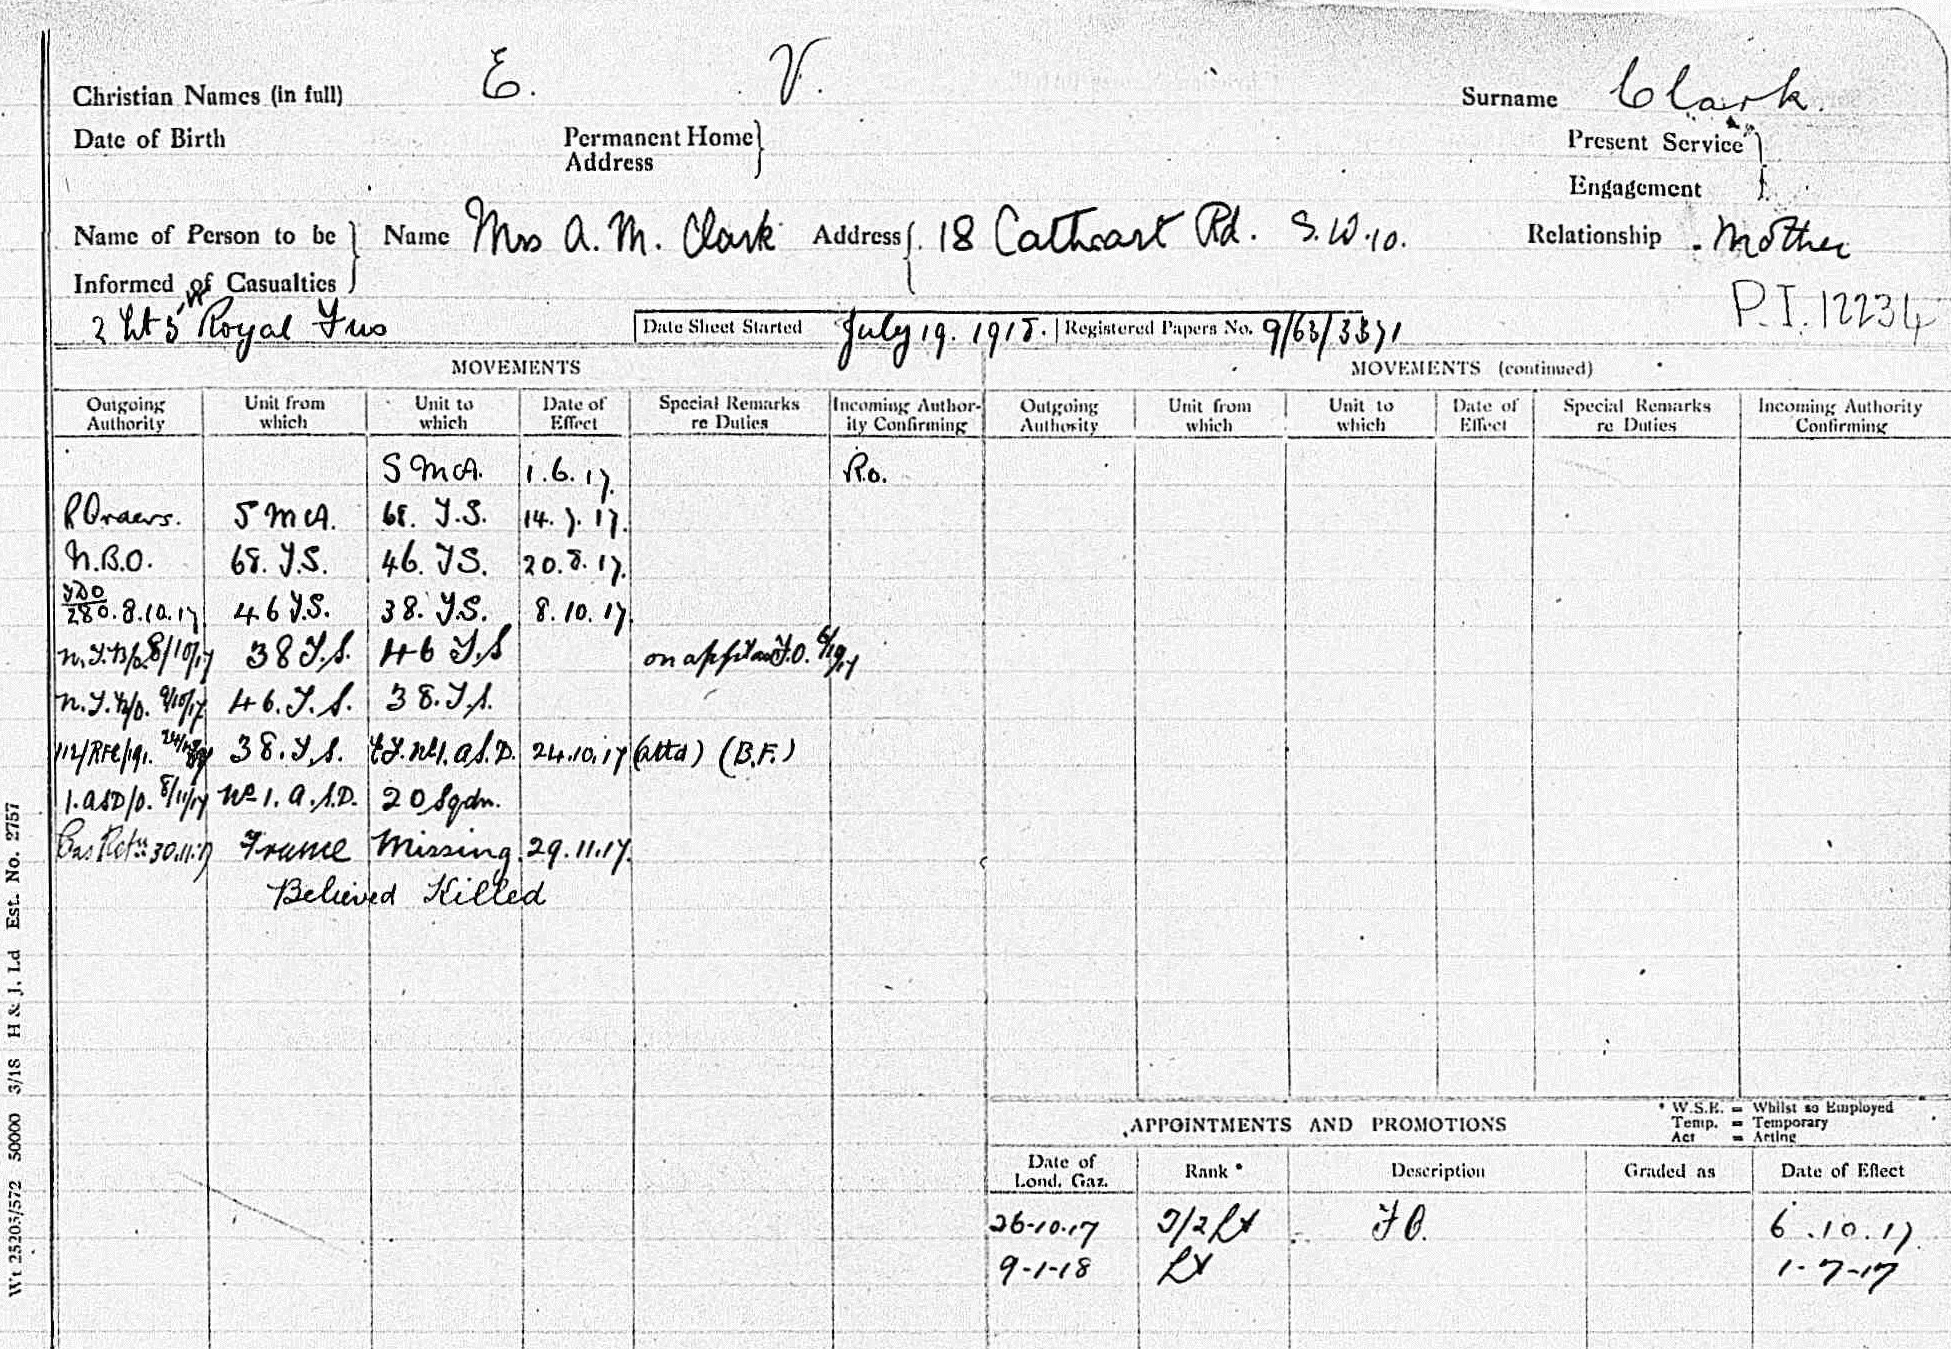 Christian Names (in full) E. V. Surname Clark.
Date of Birth Permanent Home Address } Present Service }
Engagement }
Name of Person to be Informed of Casualties } Name Mrs A. M. Clark Address { 18 Cathcart Rd. S.W.10. Relationship Mother
P.I. 12234
2 Lt 5th Royal Fus Date Sheet Started July 19. 1918. Registered Papers No. 9/63/3371
MOVEMENTS MOVEMENTS (continued)
Outgoing Authority Unit from which Unit to which Date of Effect Special Remarks re Duties Incoming Authority Confirming Outgoing Authority Unit from which Unit to which Date of Effect Special Remarks re Duties Incoming Authority Confirming
S M A. 1. 6. 17. R.O.
P Orders. S M A. 68. T.S. 14. 7. 17.
N.B.O. 68. T.S. 46. T.S. 20. 8. 17.
280. 8.10.17 46 T.S. 38. T.S. 8. 10. 17.
8/10/17 38 T.S. 46 T.S on appt as F.O. 6/10/17
9/10/17 46. T. S. 38. T.S.
112/RFC/191. 38. T.S. No 1. A.S.D. 24.10.17 (attd) (B.F.)
1. ASD/O. 8/11/17 No 1. A.S.D. 20 Sqdn.
Cas Retn 30.11.17 France Missing 29.11.17.
Believed Killed
APPOINTMENTS AND PROMOTIONS
* W.S.E. = Whilst so Employed
Temp. = Temporary
Act = Acting
Date of Lond. Gaz. Rank * Description Graded as Date of Effect
26-10-17 T/2 Lt F O. 6 . 10. 17.
9-1-18 Lt 1-7-17
Wt 25205/572 50000 3/18 H & J, Ld Est. No. 2757